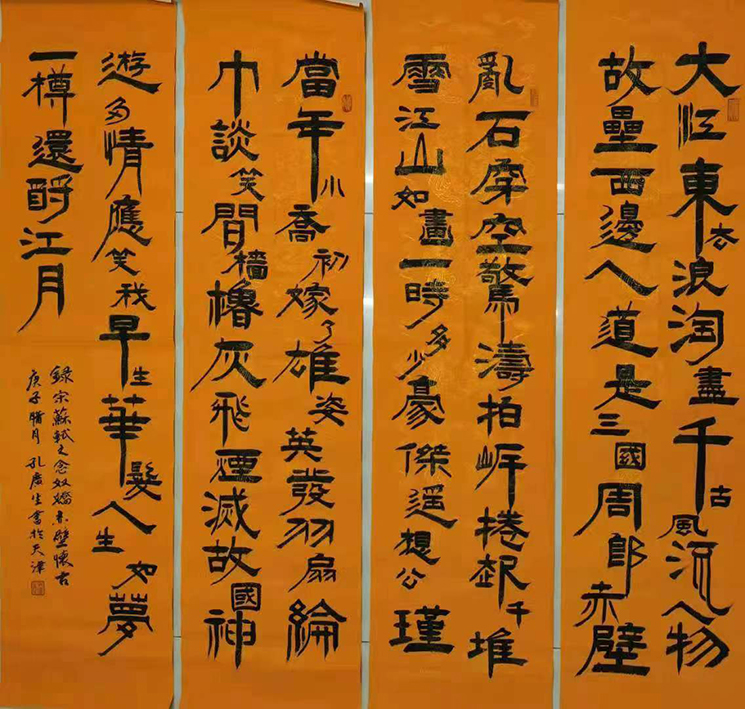 大江東去浪淘盡千古風流人物
故壘西邊人道是三國周郎赤壁
亂石穿空驚濤拍岸捲起千堆
雪江山如畫一時多少豪傑遥想公瑾
當年小喬初嫁了雄姿英發羽扇綸
巾談笑間檣櫓灰飛煙滅故國神
遊多情應笑我早生華髮人生如夢
一樽還酹江月
錄宋蘇軾之念奴嬌赤壁懷古
庚子臘月孔廣生書於天津